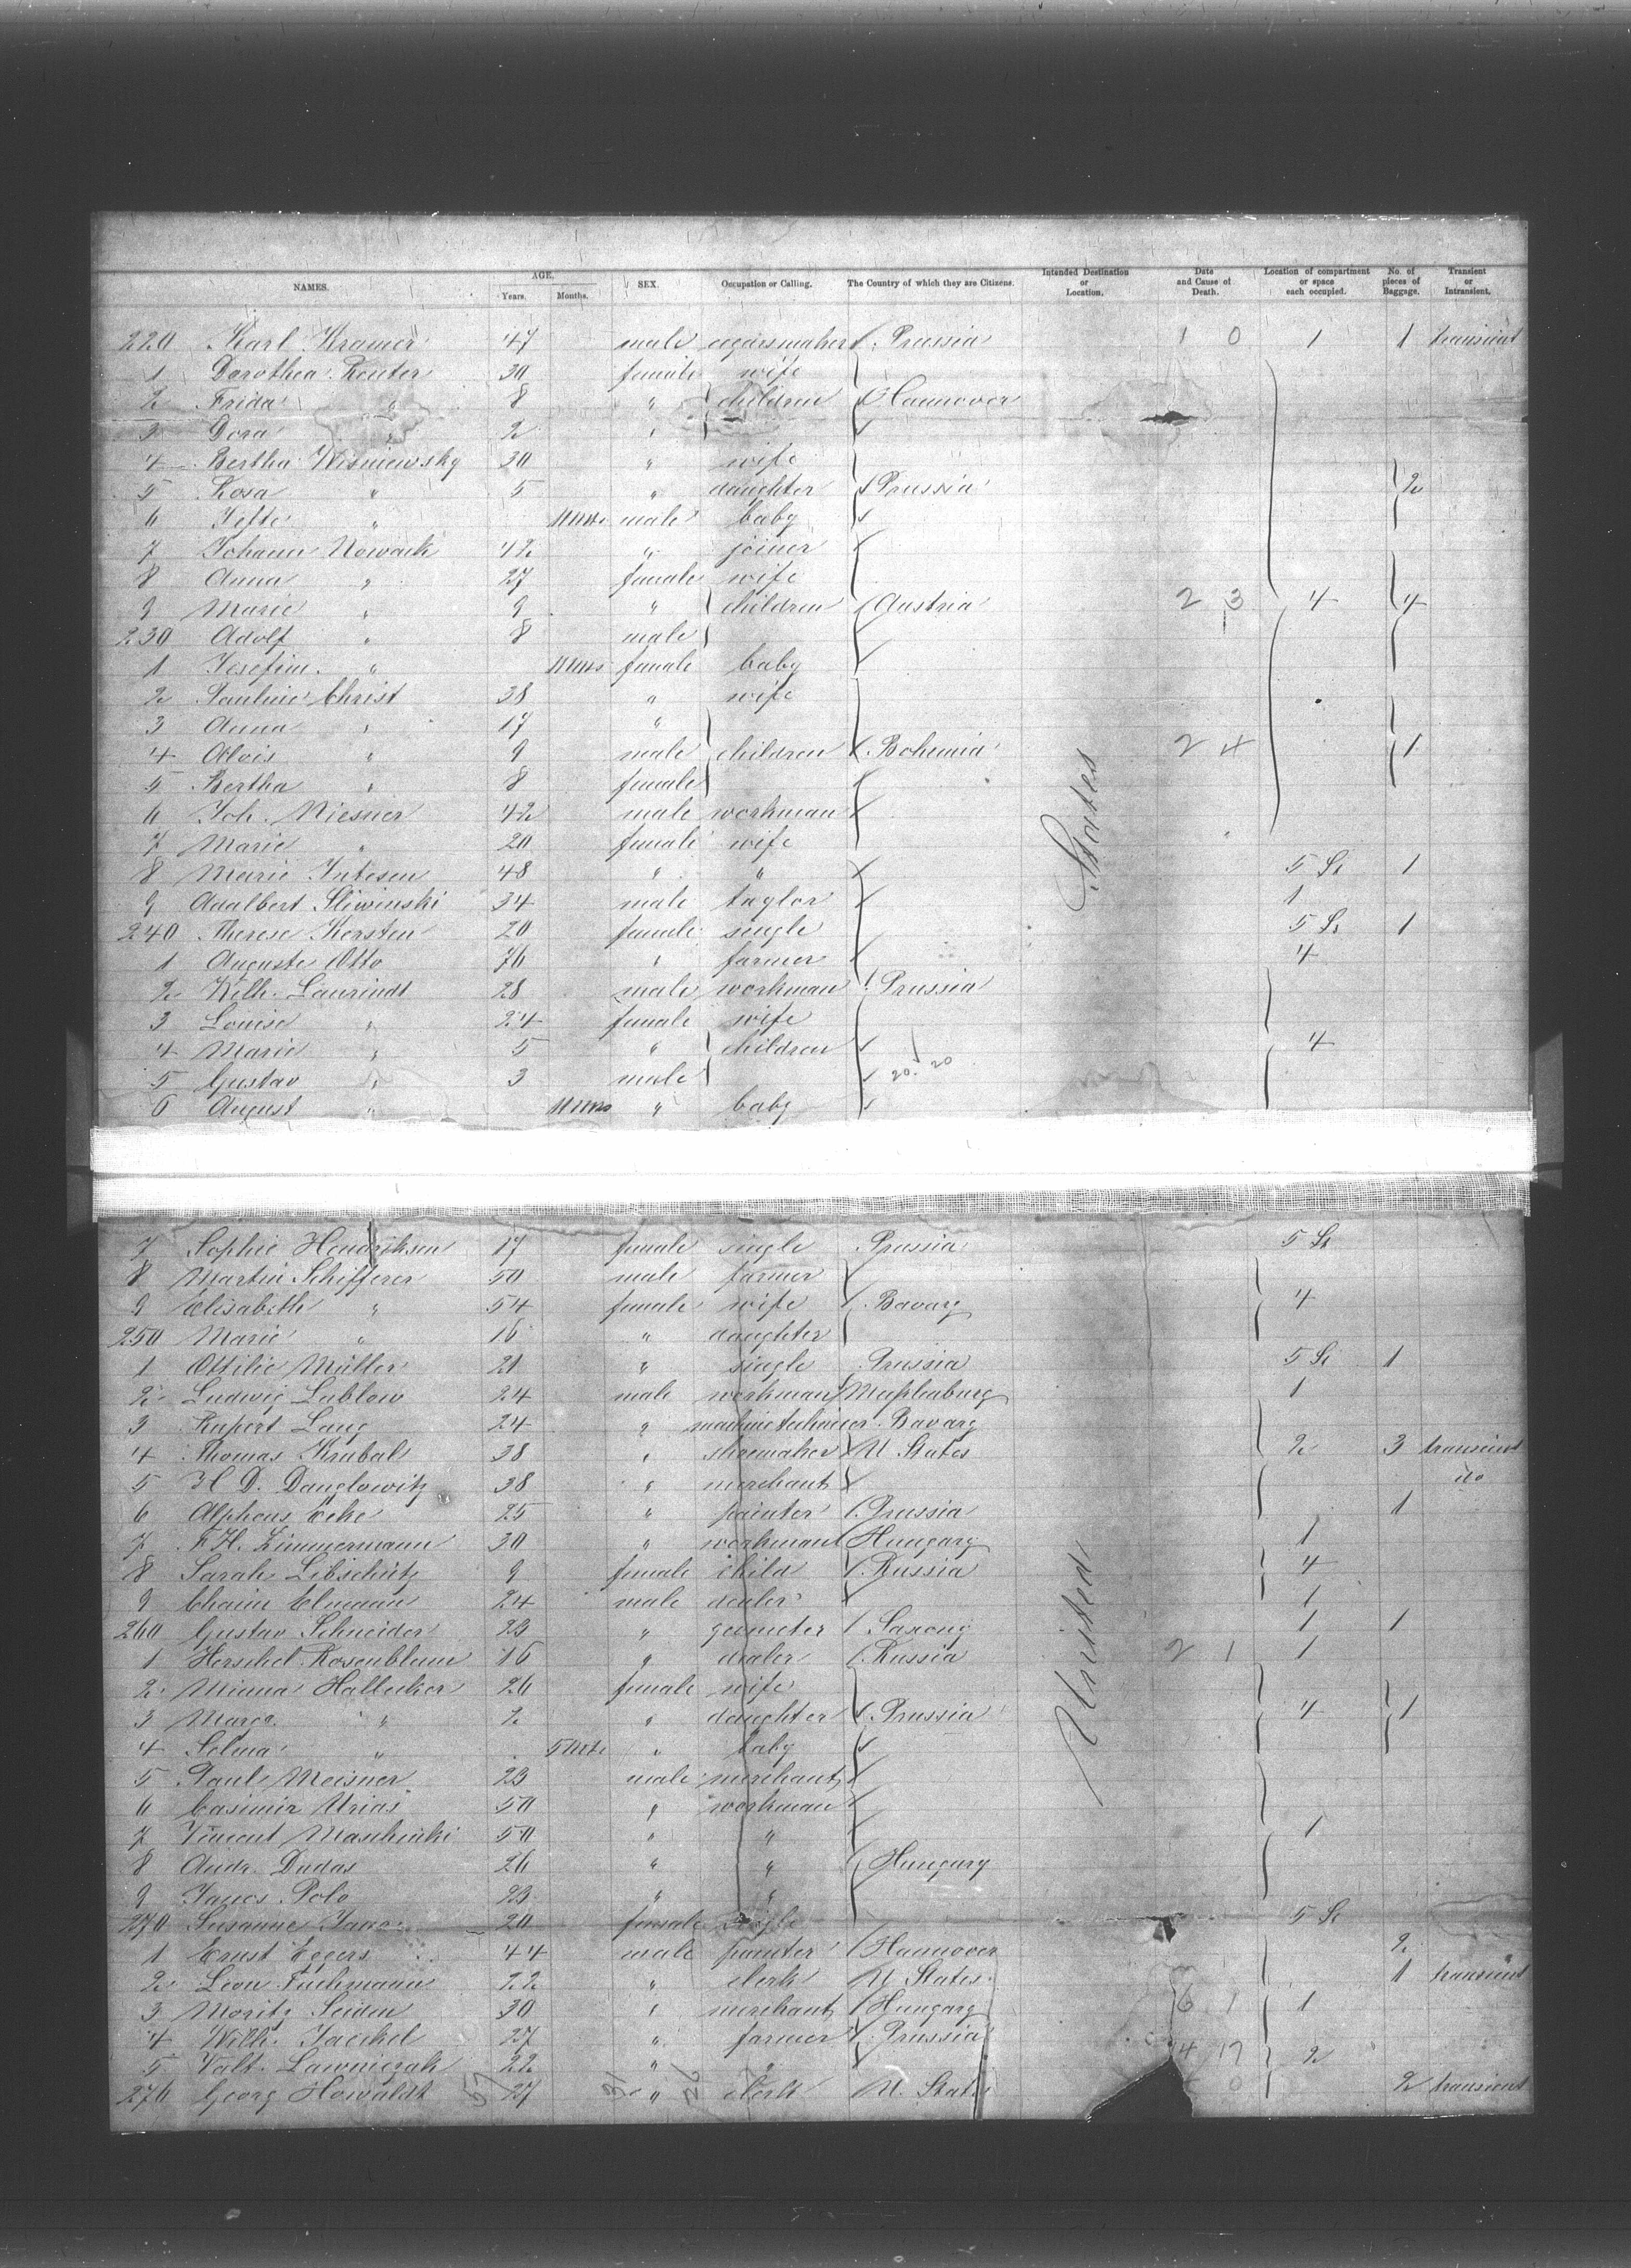 NAMES. AGE. Years. Months. SEX. Occupation or Calling. The Country of which they are Citizens. Intended Destination or Location. Date and Cause of Death. Location of compartment or space each occupied. No. of pieces of Baggage. Transient or Intransient.
220 Karl Kramer 47 male Prussia 1 0 1 1 transient
1 Dorothea Reuter 30 female wife
2 Frida " 8 " children Hannover
3 Dora " 2 "
4 Bertha Wisniewsky 30 " wife
5 Rosa " 5 " daughter Prussia 2
6 " male baby
7 Johann Nowack 42 " joiner
8 Anna " 27 female wife
9 Marie " 9 " children Austria 2 3 4 4
230 Adolf " 8 male
1 Josefin. " 11 mos female baby
2 Pauline Christ 38 " wife
3 Anna " 17 "
4 Alois " 9 male children Bohemia 2 4 1
5 Bertha " 8 female
6 Joh. Niesner 42 male workman
7 Marie " 20 female wife
8 Marie 48 " " 5 St 1
9 Adalbert Sliwinski 34 male taylor 1
240 Therese Kersten 20 female single 5 St 1
1 Auguste Otto 76 " farmer 4
2 Wilh. Laurindt 28 male workman Prussia
3 Louise " 24 female wife
4 Marie " 5 " children 4
5 Gustav " 3 male 20. 20
6 August " 11 mos " baby
7 Sophie Hendriksen 17 female single Prussia 5 St
8 Martin Schifferer 50 male farmer
9 Elisabeth " 54 female wife Bavary 4
250 Marie " 16 " daughter
1 Ottilie Müller 21 " single Prussia 5 St 1
2 Ludwig Lublow 24 male workman 1
3 Rupert Lang 24 " Bavary
4 Thomas Krubal 38 " shoemaker U States 2 3 transient
5 H D. Dauglowitz 38 " merchant do
6 Alphons Ecke 25 " painter Prussia 1
7 F. H. Zimmermann 30 " workman Hungary 1
8 Sarah Libschütz 9 female child Russia 4
9 Chaim Elmann 24 male dealer 1
260 Gustav Schneider 23 " geometer Saxony 1 1
1 Herschel Rosenblum 16 " dealer Russia 2 1 1
2 Minna 26 female wife
3 " 2 " daughter Prussia 4 1
4 Selma " " baby
5 Paul Meisner 23 male merchant
6 Casimir Urias 50 " workman
7 Vincent 50 " " 1
8 Andr. Dudas 26 " " Hungary
9 Janos Polo 23 " "
270 Susanne 20 female single 5 St
1 Ernst Eggers 44 male Hannover 2
2 Leon 22 " clerk U States. 1 transient
3 Moritz 30 " merchant Hungary 6 1 1
4 Wilh. Jaeckel 27 " farmer Prussia
5 Valt. Lawniczak 22 " " 4 17 2
276 Georg Howaldt 57 27 31 " 26 clerk U. States 0 2 transient
United States